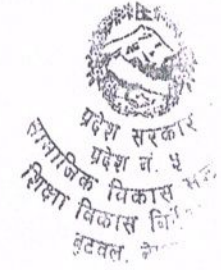 प्रदेश सरकार
प्रदेश नं. ५
सामाजिक विकास
शिक्षा विकास
बुटवल